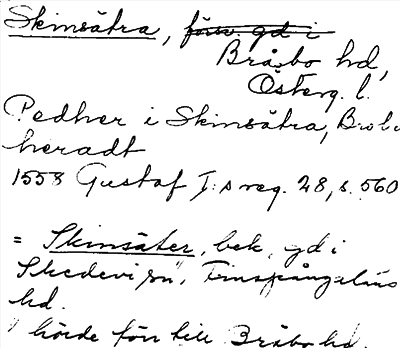 Skinsätra, förr gd i
Bråbo hd,
Österg. l.
Pedher i Skinsätra, Brobo
heradt
1558 Gustaf I:s reg. 28, s. 560
= Skinsäter, bek. gd i
Skedevi sn, Finspångaläns
hd.
hörde förr till Bråbo hd.